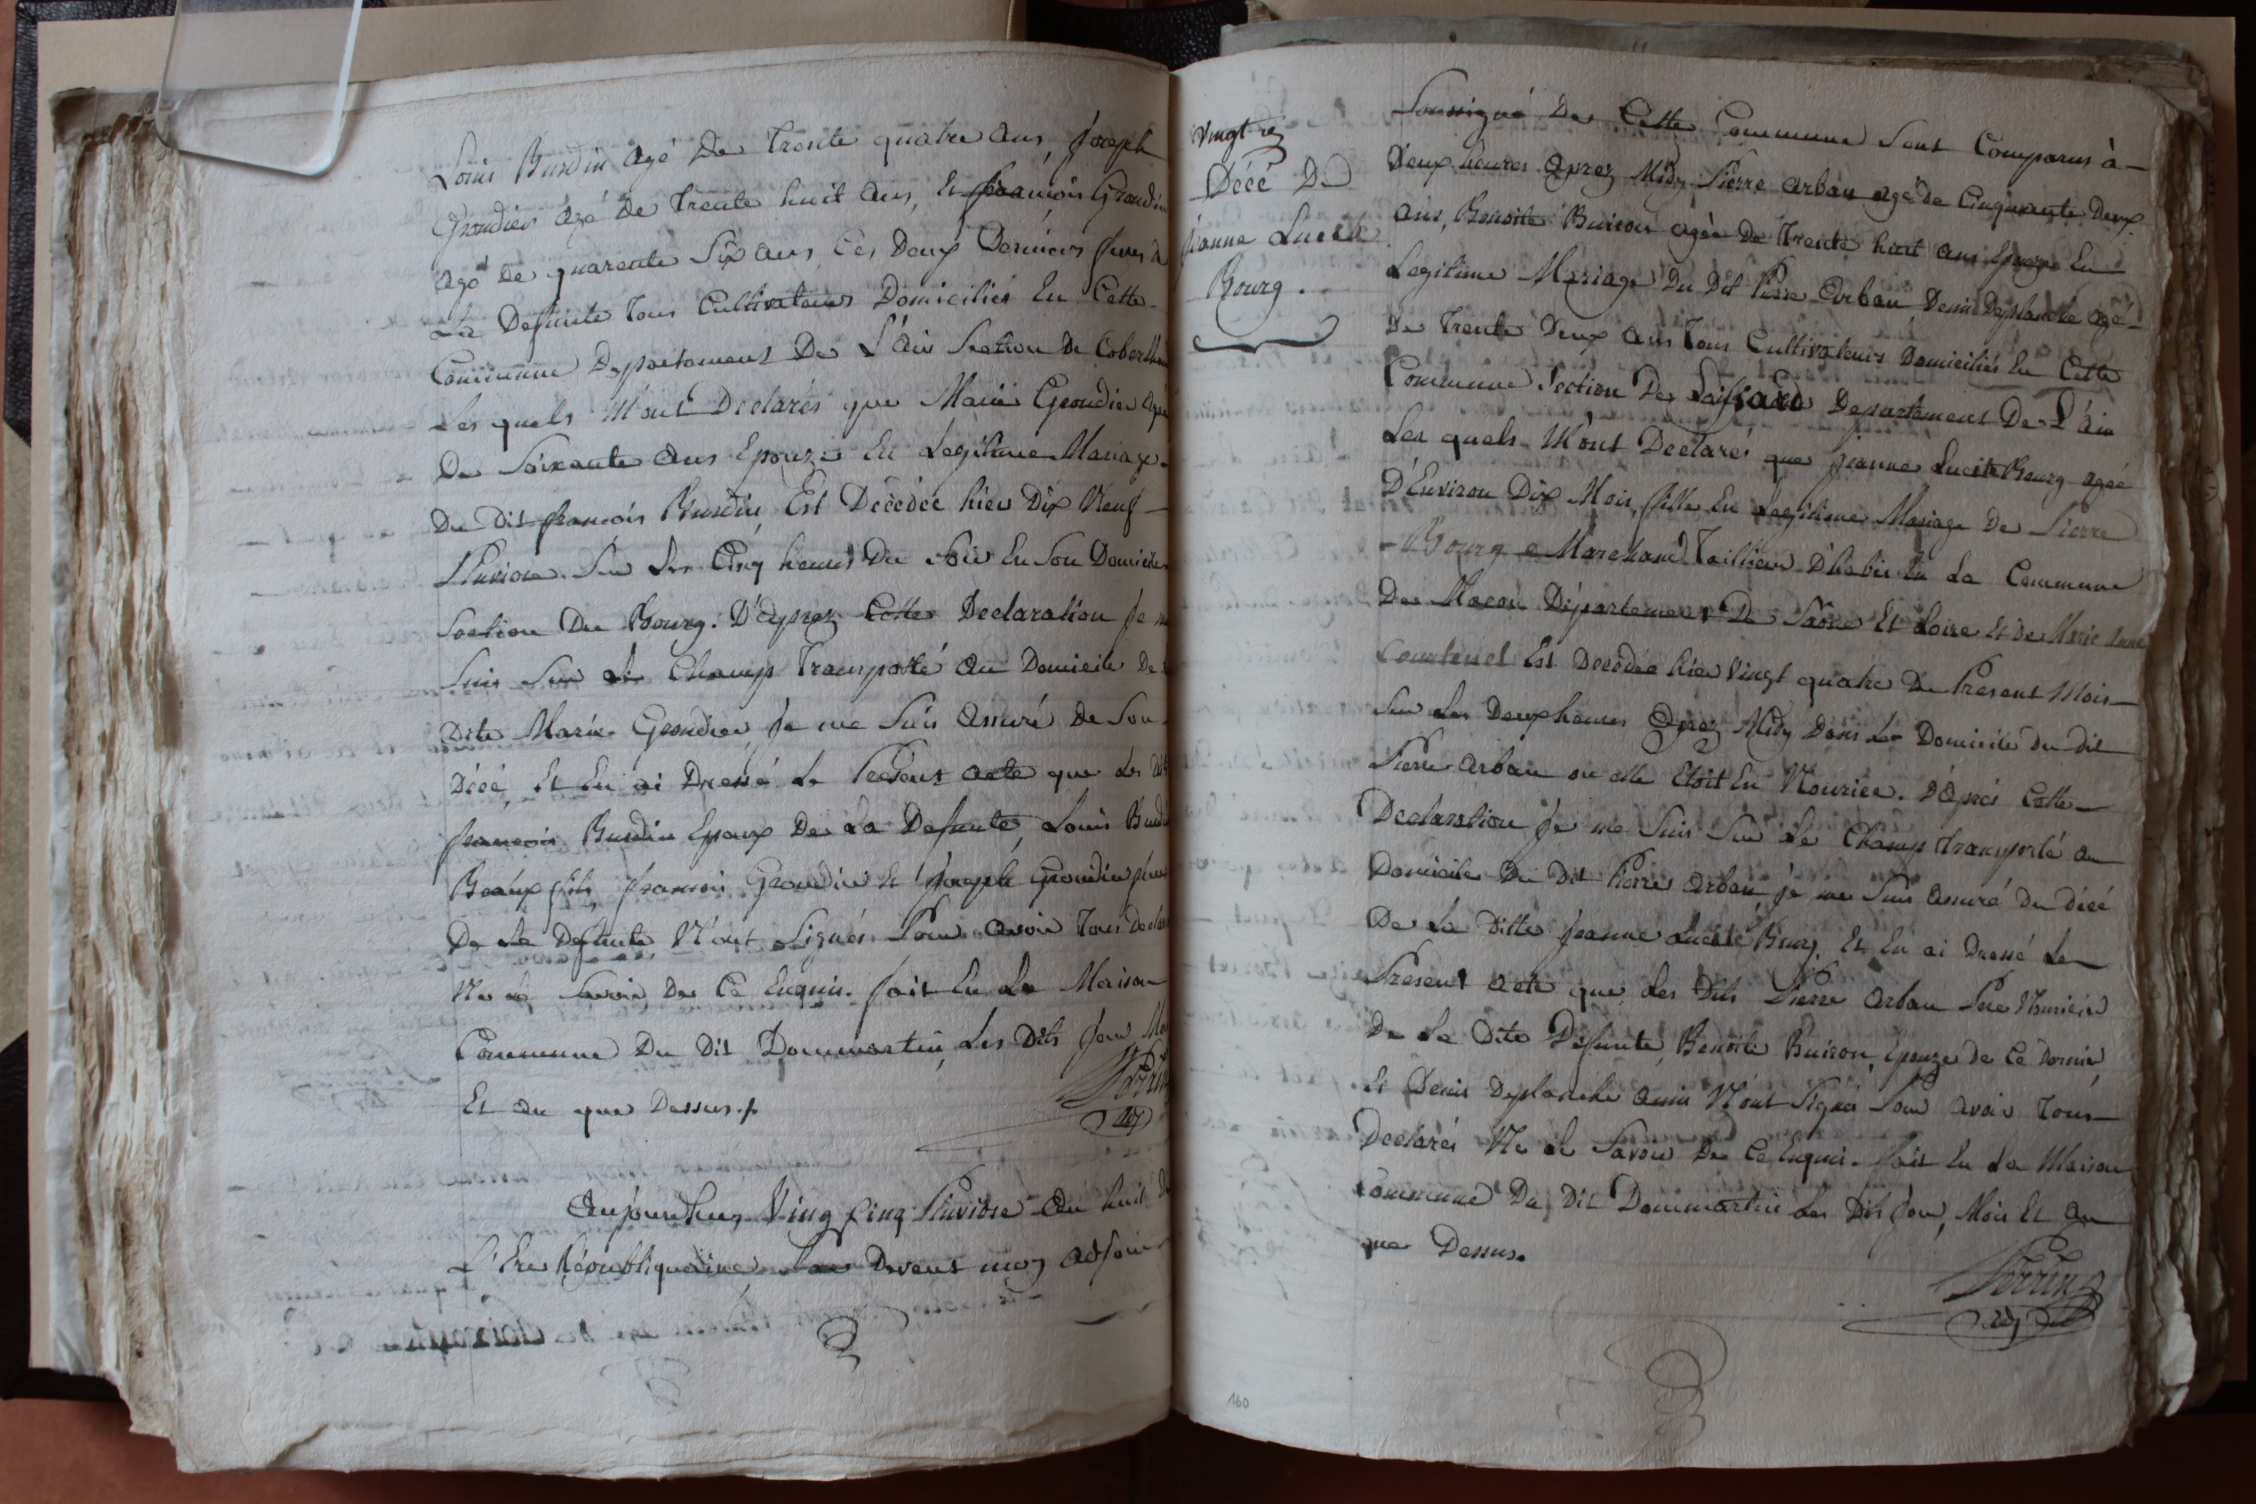 Louis Burdin agé De Trente quatre ans, Joseph
Grondier agé De Trente huit ans, Et françois Grondin
agé De quarente Six ans, Ces Deux Derniers freres de
La Defunte Tous Cultivateurs Domiciliés En Cette
Commune Departement De L'ain Section De
Les quels M'ont Declarés que Marie Grondier agée
De Soixante ans Epouze En Legitime Mariage
Du Dit françois Burdin Est Décédée hier Dix Neuf
Pluviose Sur Les Cinq heures Du Soir En Son Domicile
Section Du Bourg. D'Eprez Cette Declaration Je me
Suis Sur Le Champ Transporté au Domicile De
Dite Marie Grondier, Je me Suis assuré de Son
Décé, Et En ai Dressé Le Présent acte que Les dits
françois Burdin Epoux De La Defunte Louis Burdin
Beaux fils, françois Grondin Et Joseph Grondin freres
De La Defunte N'ont Signés Pour avoir Tous Declarés
Ne le Savoir De Ce Enquis. fait En La Maison
Commune Du Dit Dommartin, Les Dits Jour Mois
Et an que Dessus./.
Perrin
adj
Aujourdhuy Ving Cinq Pluviose an huit De
L'Ere Républiquaine Par Devant moy adjoint
Vingt
Décé De
jeanne Lucile
Bourg.
Soussigné De Cette Commune Sont Comparus à
Deux heures aprez Midy Pierre arban agé de Cinquante Deux
ans, Benoite Buiron agée De Trente huit ans Epouze En
Legitime Mariage Du Dit Pierre Arban, Denis Deplanche agé
De Trente Deux ans Tous Cultivateurs Domiciliés En Cette
Commune Section De Departement De L'ain
Les quels M'ont Declarés que jeanne Lucile Bourg agée
D'Environ Dix Mois, fille En Legitime Mariage De Pierre
Bourg Marchand Tailleur D'habit En La Commune
De Macon Département De Saone Et Loire Et de Marie Anne
Est Décédée hier Vingt quatre Du Present Mois
Sur Les Deux heures aprez Midy Dans Le Domicile du dit
Pierre arban ou elle Etoit En Nourice. D'Aprés Cette
Declaration Je me Suis Sur Le Champ transporté au
Domicile Du Dit Pierre arban, je me Suis assuré du décé
De La Ditte Jeanne Lucile Bourg, Et En ai Dressé Le
Present acte que Les Dits Pierre arban Pere Nouricier
De La Dite Défunte, Benoite Buiron, Epouze de Ce Dernier
Et Denis Deplanche ami N'ont Signés Pour avoir Tous
Declarés Ne le Savoir De Ce Enquis. fait En La Maison
Commune Du Dit Dommartin Les Dits Jour, Mois Et an
que Dessus.
Perrin
adj
160